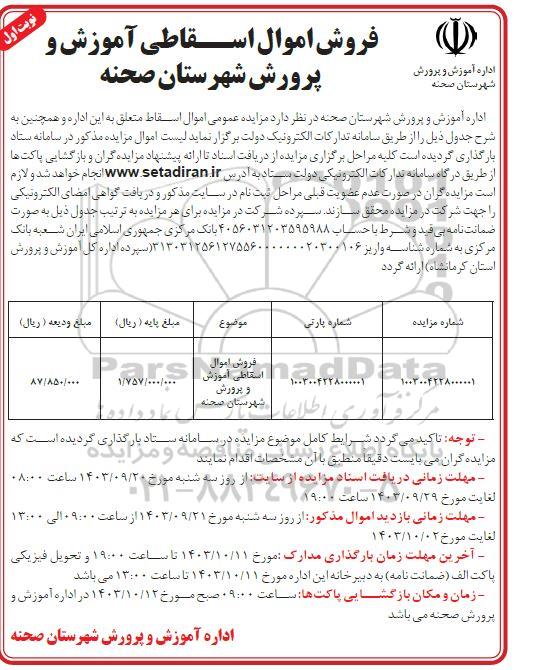 نوبت اول
فروش اموال اسقاطی آموزش و
پرورش شهرستان صحنه
اداره آموزش و پرورش
شهرستان صحنه
اداره آموزش و پرورش شهرستان صحنه در نظر دارد مزایده عمومی اموال اسقاط متعلق به این اداره و همچنین به
شرح جدول ذیل را از طریق سامانه تدارکات الکترونیک دولت برگزار نماید لیست اموال مزایده مذکور در سامانه ستاد
بارگذاری گردیده است کلیه مراحل برگزاری مزایده از دریافت اسناد تا ارائه پیشنهاد مزایده گران و بازگشایی پاکت ها
از طریق درگاه سامانه تدارکات الکترونیکی دولت ستاد به آدرس www.setadiran.ir انجام خواهد شد و لازم
است مزایده گران در صورت عدم عضویت قبلی مراحل ثبت نام در سایت مذکور و دریافت گواهی امضای الکترونیکی
را جهت شرکت در مزایده محقق سازند. سپرده شرکت در مزایده برای هر مزایده به ترتیب جدول ذیل به صورت
ضمانت نامه بی قید و شرط یا حساب ۴۰۵۶۰۳۱۲۰۳۵۹۵۹۸۸ بانک مرکزی جمهوری اسلامی ایران شعبه بانک
مرکزی به شماره شناسه واریز (سپرده اداره کل آموزش و پرورش
استان کرمانشاه) ارائه گردد
شماره مزایده	شماره پارتی	موضوع	مبلغ پایه (ریال)	مبلغ ودیعه (ریال)
۱۰۰۳۰۰۴۲۲۸۰۰۰۰۰۱	۱۰۰۳۰۰۴۲۲۸۰۰۰۰۰۱	فروش اموال	۱/۷۵۷/۰۰۰/۰۰۰	۸۷/۸۵۰/۰۰۰
اسقاطی آموزش
و پرورش
شهرستان صحنه
- توجه: تاکید می گردد شرایط کامل موضوع مزایده در سامانه ستاد بارگذاری گردیده است که
مزایده گران می بایست دقیقا منطبق با آن مشخصات اقدام نمایند
- مهلت زمانی دریافت اسناد مزایده از سایت: از روز سه شنبه مورخ ۱۴۰۳/۰۹/۲۰ ساعت ۰۸:۰۰
لغایت مورخ ۱۴۰۳/۰۹/۲۹ ساعت ۱۹:۰۰
- مهلت زمانی بازدید اموال مذکور: از روز سه شنبه مورخ ۱۴۰۳/۰۹/۲۱ از ساعت ۰۹:۰۰ الی ۱۳:۰۰
لغایت مورخ ۱۴۰۳/۱۰/۰۲
- آخرین مهلت زمان بارگذاری مدارک: مورخ ۱۴۰۳/۱۰/۱۱ تا ساعت ۱۹:۰۰ و تحویل فیزیکی
پاکت الف (ضمانت نامه) به دبیرخانه این اداره مورخ ۱۴۰۳/۱۰/۱۱ تا ساعت ۱۳:۰۰ می باشد
- زمان و مکان بازگشایی پاکت ها: ساعت ۰۹:۰۰ صبح مورخ ۱۴۰۳/۱۰/۱۲ در اداره آموزش و
پرورش صحنه می باشد
اداره آموزش و پرورش شهرستان صحنه
ParsNamadData